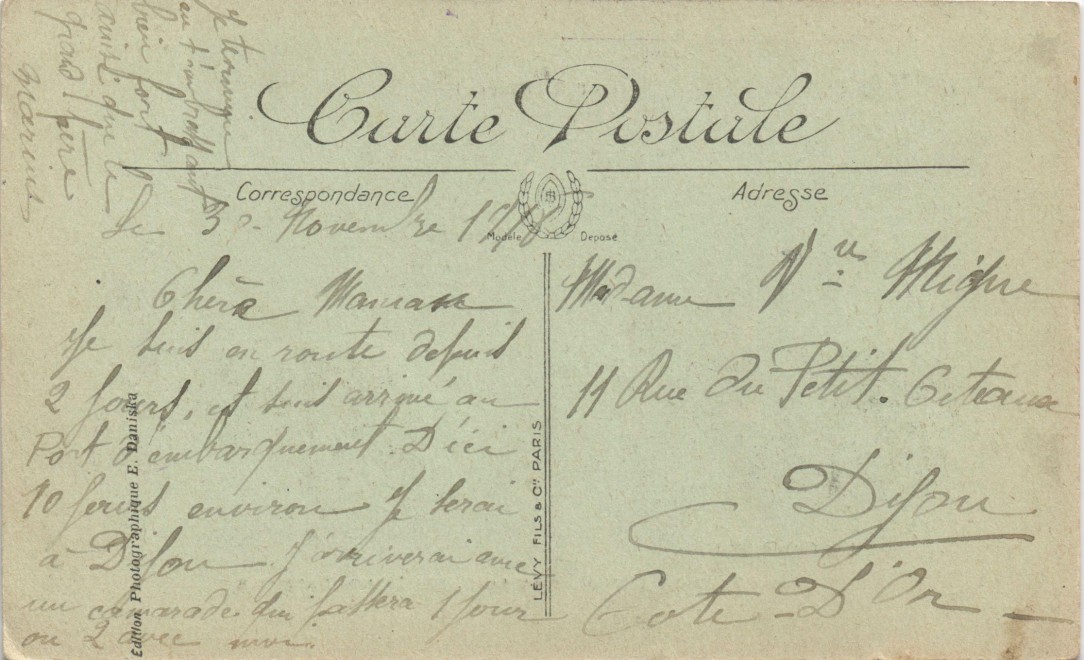 Carte Postale
Correspondance
Adresse
Modèle Déposé
Le 3 Novembre
Chère Maman
Je suis en route depuis
2 jours, et suis arrivé au
Port d'embarquement. D'ici
10 jours environ je serai
à Dijon. J'arriverai avec
un camarade qui passera 1 jour
ou 2 avec moi.
Je termine
en t'embrassant
bien fort
ainsi que le
grand père
Marius
Madame Vve Migne
11 Rue du Petit. Citeaux
Dijon
Cote - D'Or -
Edition Photographique E. Daniska
LÉVY FILS & Cie PARIS